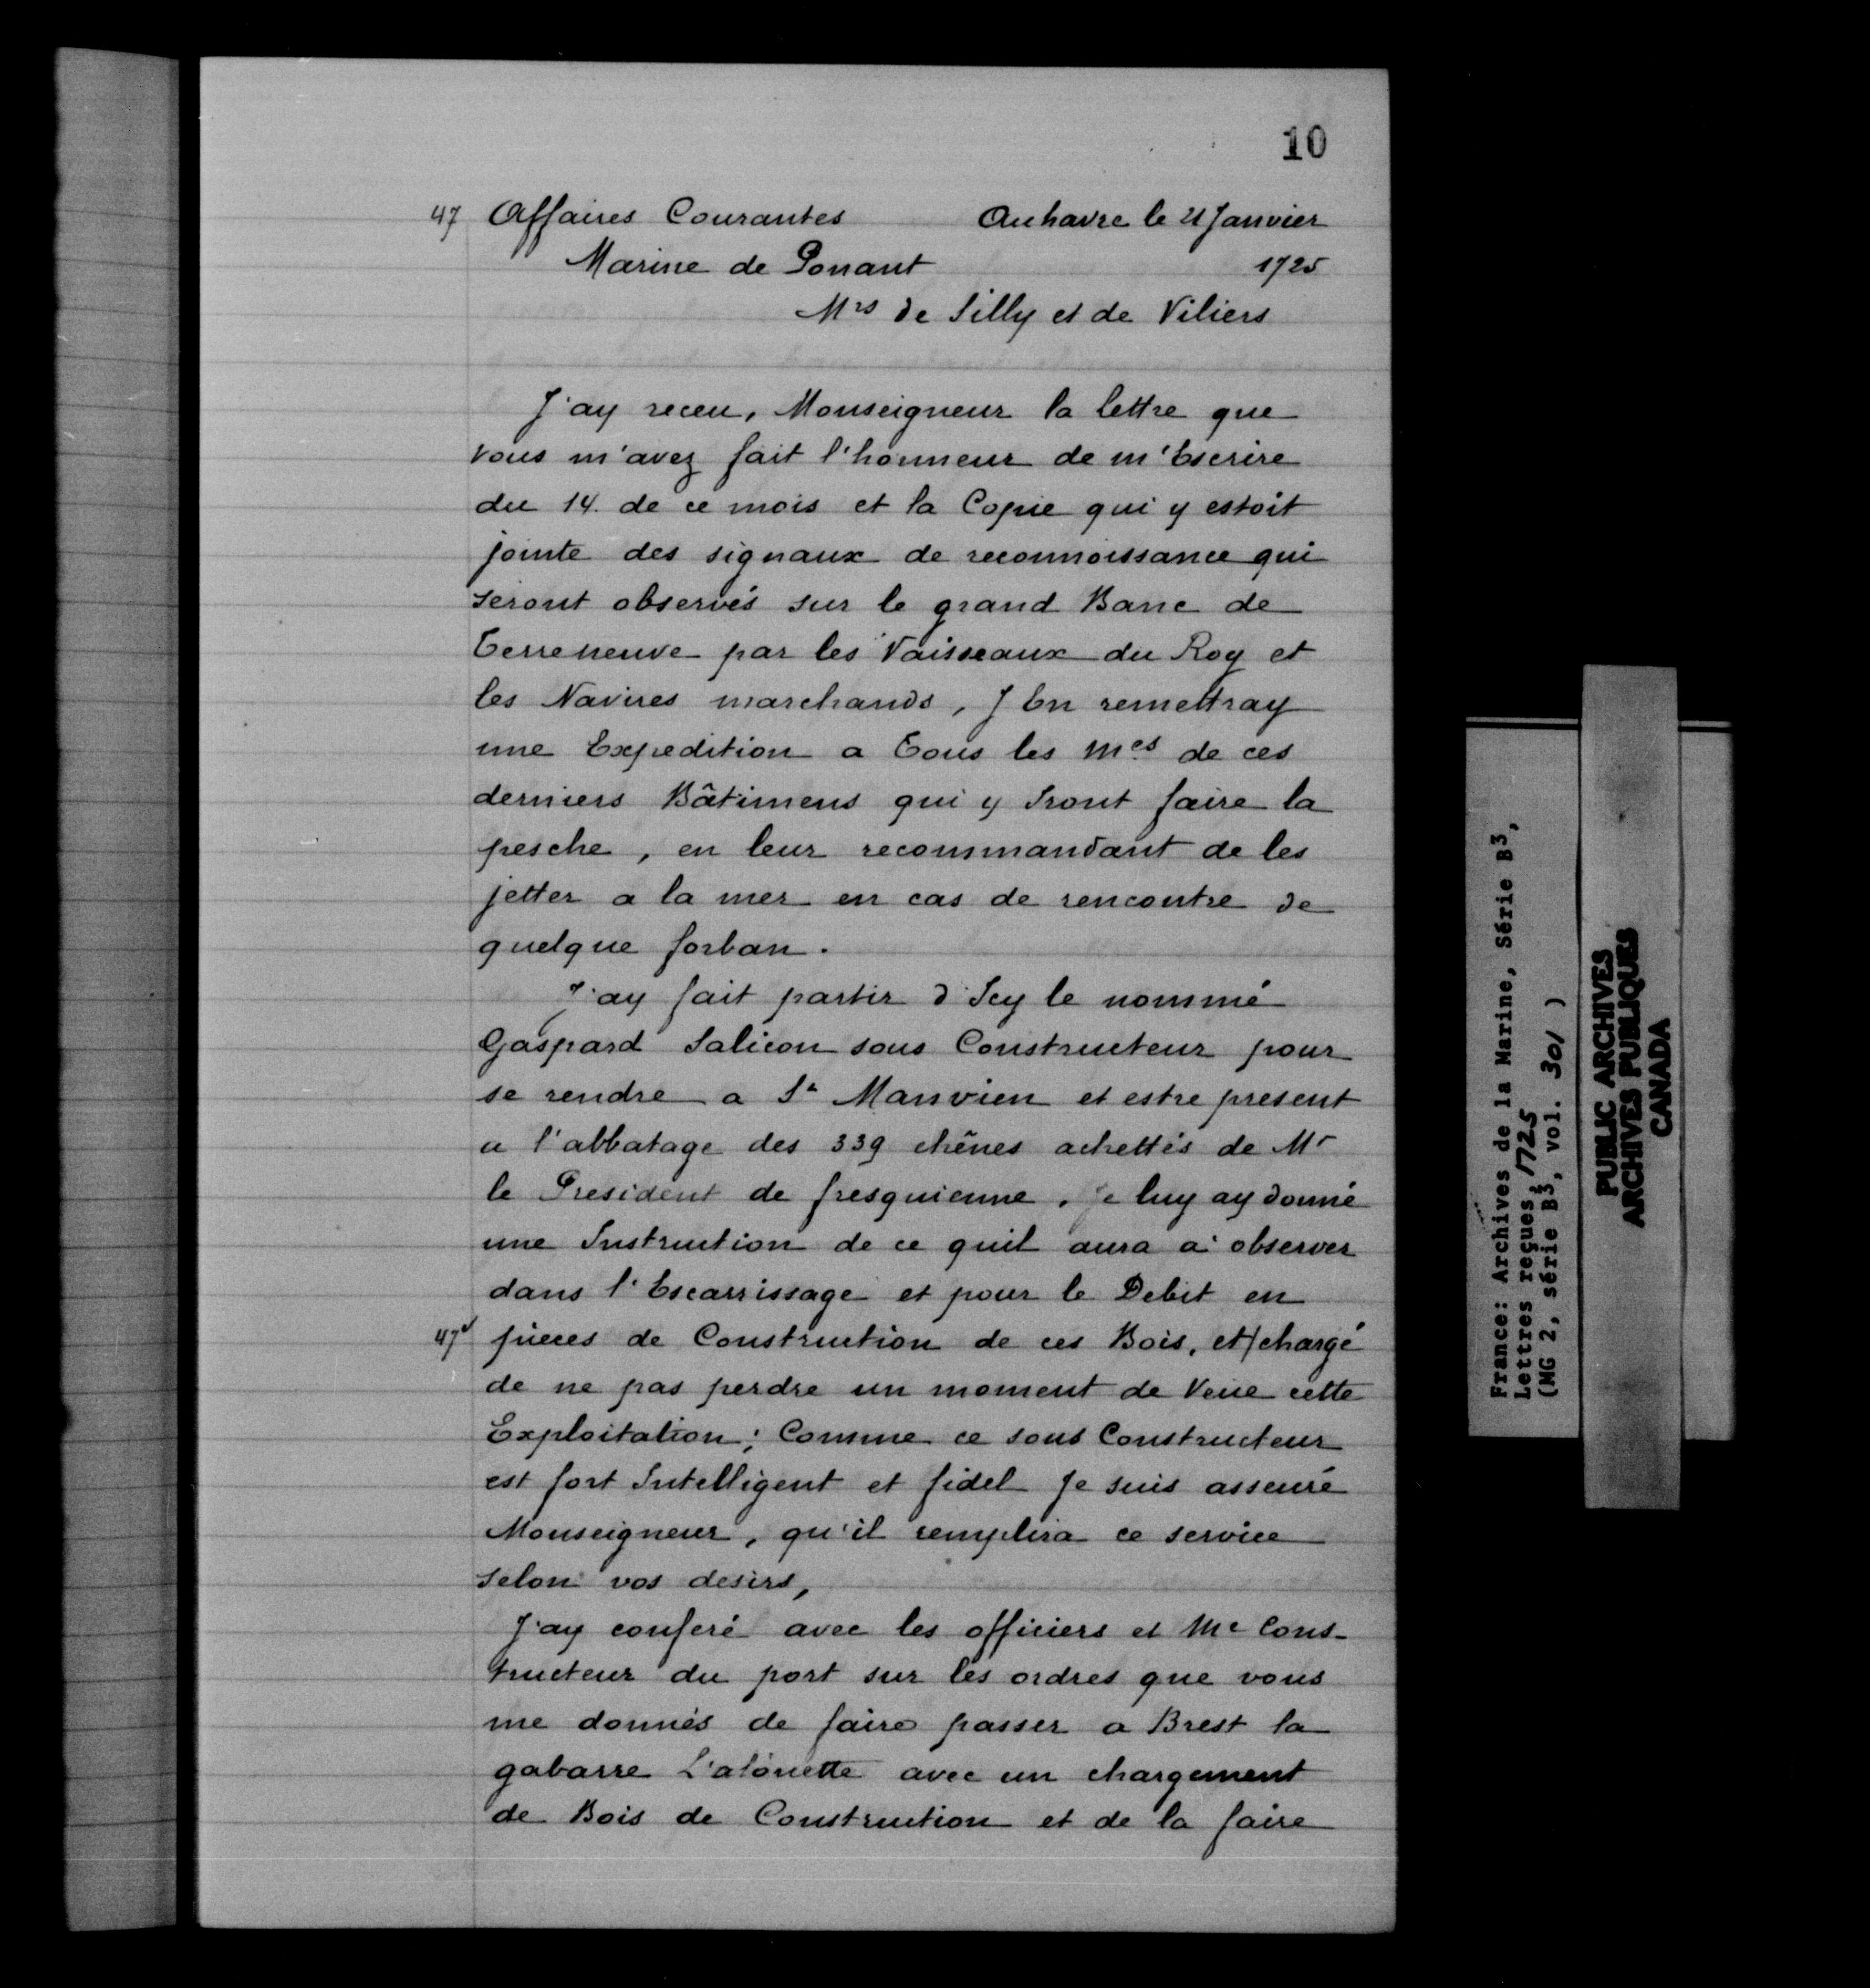 10
47 Affaires Courantes Auhavre le 21 Janvier
Marine de Ponant 1725
Mrs de Silly et de Viliers
J'ay receu, Monseigneur la lettre que
vous m'avez fait l'honneur de m'Escrire
du 14. de ce mois et la Copie qui y estoit
jointe des signaux de reconnoissance qui
seront observés sur le grand Banc de
Terreneuve par les Vaisseaux du Roy et
les Navires marchands, J En remettray
une Expedition a Tous les mes de ces
derniers Bâtimens qui y Iront faire la
pesche, en leur recommandant de les
jetter a la mer en cas de rencontre de
quelque forban.
J'ay fait partir d'Icy le nommé
Gaspard Salicon sous Constructeur pour
se rendre a St Manvien et estre present
a l'abbatage des 339 chênes achettés de Mr
le President de fresquienne. Je luy ay donné
une Instruction de ce quil aura a observer
dans l'Escarrissage et pour le Debit en
47v pieces de Construction de ces Bois, et/chargé
de ne pas perdre un moment de Veue cette
Exploitation; Comme ce sous Constructeur
est fort Intelligent et fidel Je suis asseuré
Monseigneur, qu'il remplira ce service
selon vos desirs,
J'ay conferé avec les officiers et Me Cons-
tructeur du port sur les ordres que vous
me donnés de faire passer a Brest la
gabarre L'aloüette avec un chargement
de Bois de Construction et de la faire
France: Archives de la Marine, Série B3,
Lettres reçues, 1725
(MG 2, série B3, vol. 301 )
PUBLIC ARCHIVES
ARCHIVES PUBLIQUES
CANADA